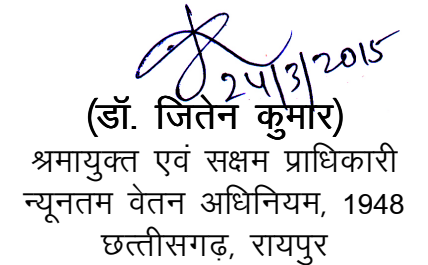 24/3/2015
(डॉ. जितेन कुमार)
श्रमायुक्त एवं सक्षम प्राधिकारी
न्यूनतम वेतन अधिनियम, 1948
छत्तीसगढ़, रायपुर